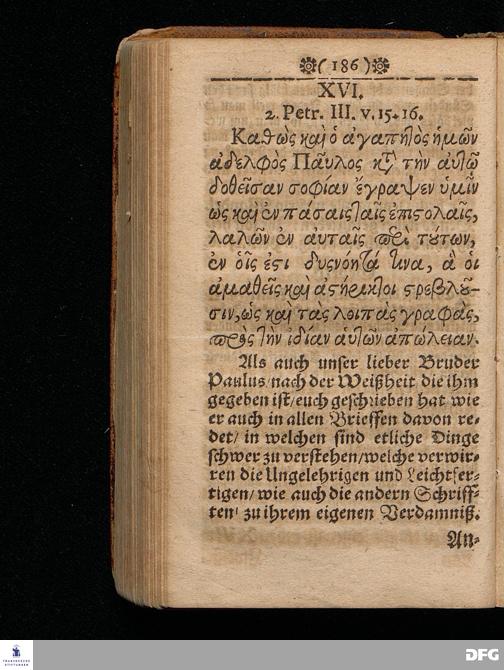 ❁( 186 )❁
XVI.
2. Petr. III. v. 15. 16.
Καθὼς καὶ ὁ ἀγαπητὸς ἡμῶν
ἀδελφὸς Παῦλος κτ̃ τὴν αὐτῷ
δοθεῖσαν σοφίαν ἔγραψεν ὑμῖν
ὡς καὶ ἐν πάσαις ταῖς ἐπιστολαῖς,
λαλῶν ἐν αὐταῖς περὶ τύτων,
ἐν οἷς ἐστι δυσνόητά τινα, ἃ οἱ
ἀμαθεῖς καὶ ἀστήρικτοι στρεβλῦ-
σιν, ὡς καὶ τὰς λοιπὰς γραφὰς,
πρὸς τὴν ἰδίαν ἁυτῶν ἀπώλειαν.
Als auch unſer lieber Bruder
Paulus/ nach der Weißheit die ihm
gegeben iſt/ euch geſchrieben hat wie
er auch in allen Brieffen davon re-
det/ in welchen ſind etliche Dinge
ſchwer zu verſtehen/ welche verwir-
ren die Ungelehrigen und Leichtfer-
tigen/ wie auch die andern Schriff-
ten/ zu ihrem eigenen Verdamniß.
An-
FRANCKESCHE
STIFTUNGEN
DFG